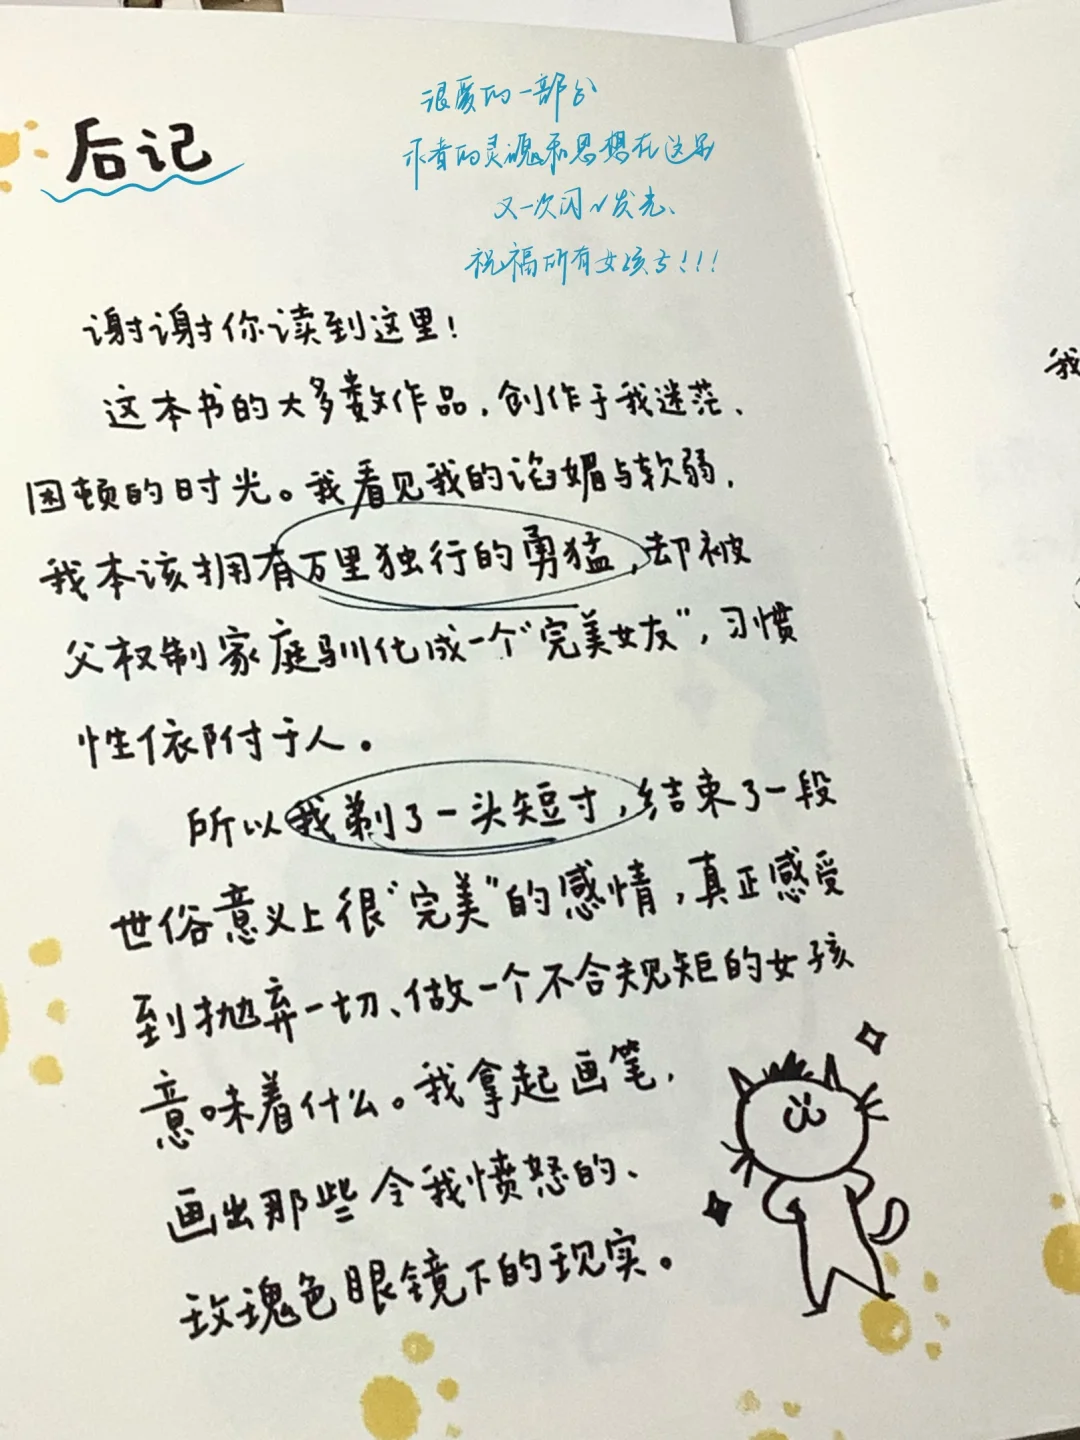 后记
很爱的一部分
作者的灵魂和思想在这里
又一次闪闪发光、
祝福所有女孩子!!!
谢谢你读到这里!
这本书的大多数作品,创作于我迷茫、
困顿的时光。我看见我的谄媚与软弱,
我本该拥有万里独行的勇猛,却被
父权制家庭驯化成一个“完美女友”,习惯
性依附于人。
所以我剃了一头短寸,结束了一段
世俗意义上很“完美”的感情,真正感受
到抛弃一切、做一个不合规矩的女孩
意味着什么。我拿起画笔,
画出那些令我愤怒的、
玫瑰色眼镜下的现实。
我